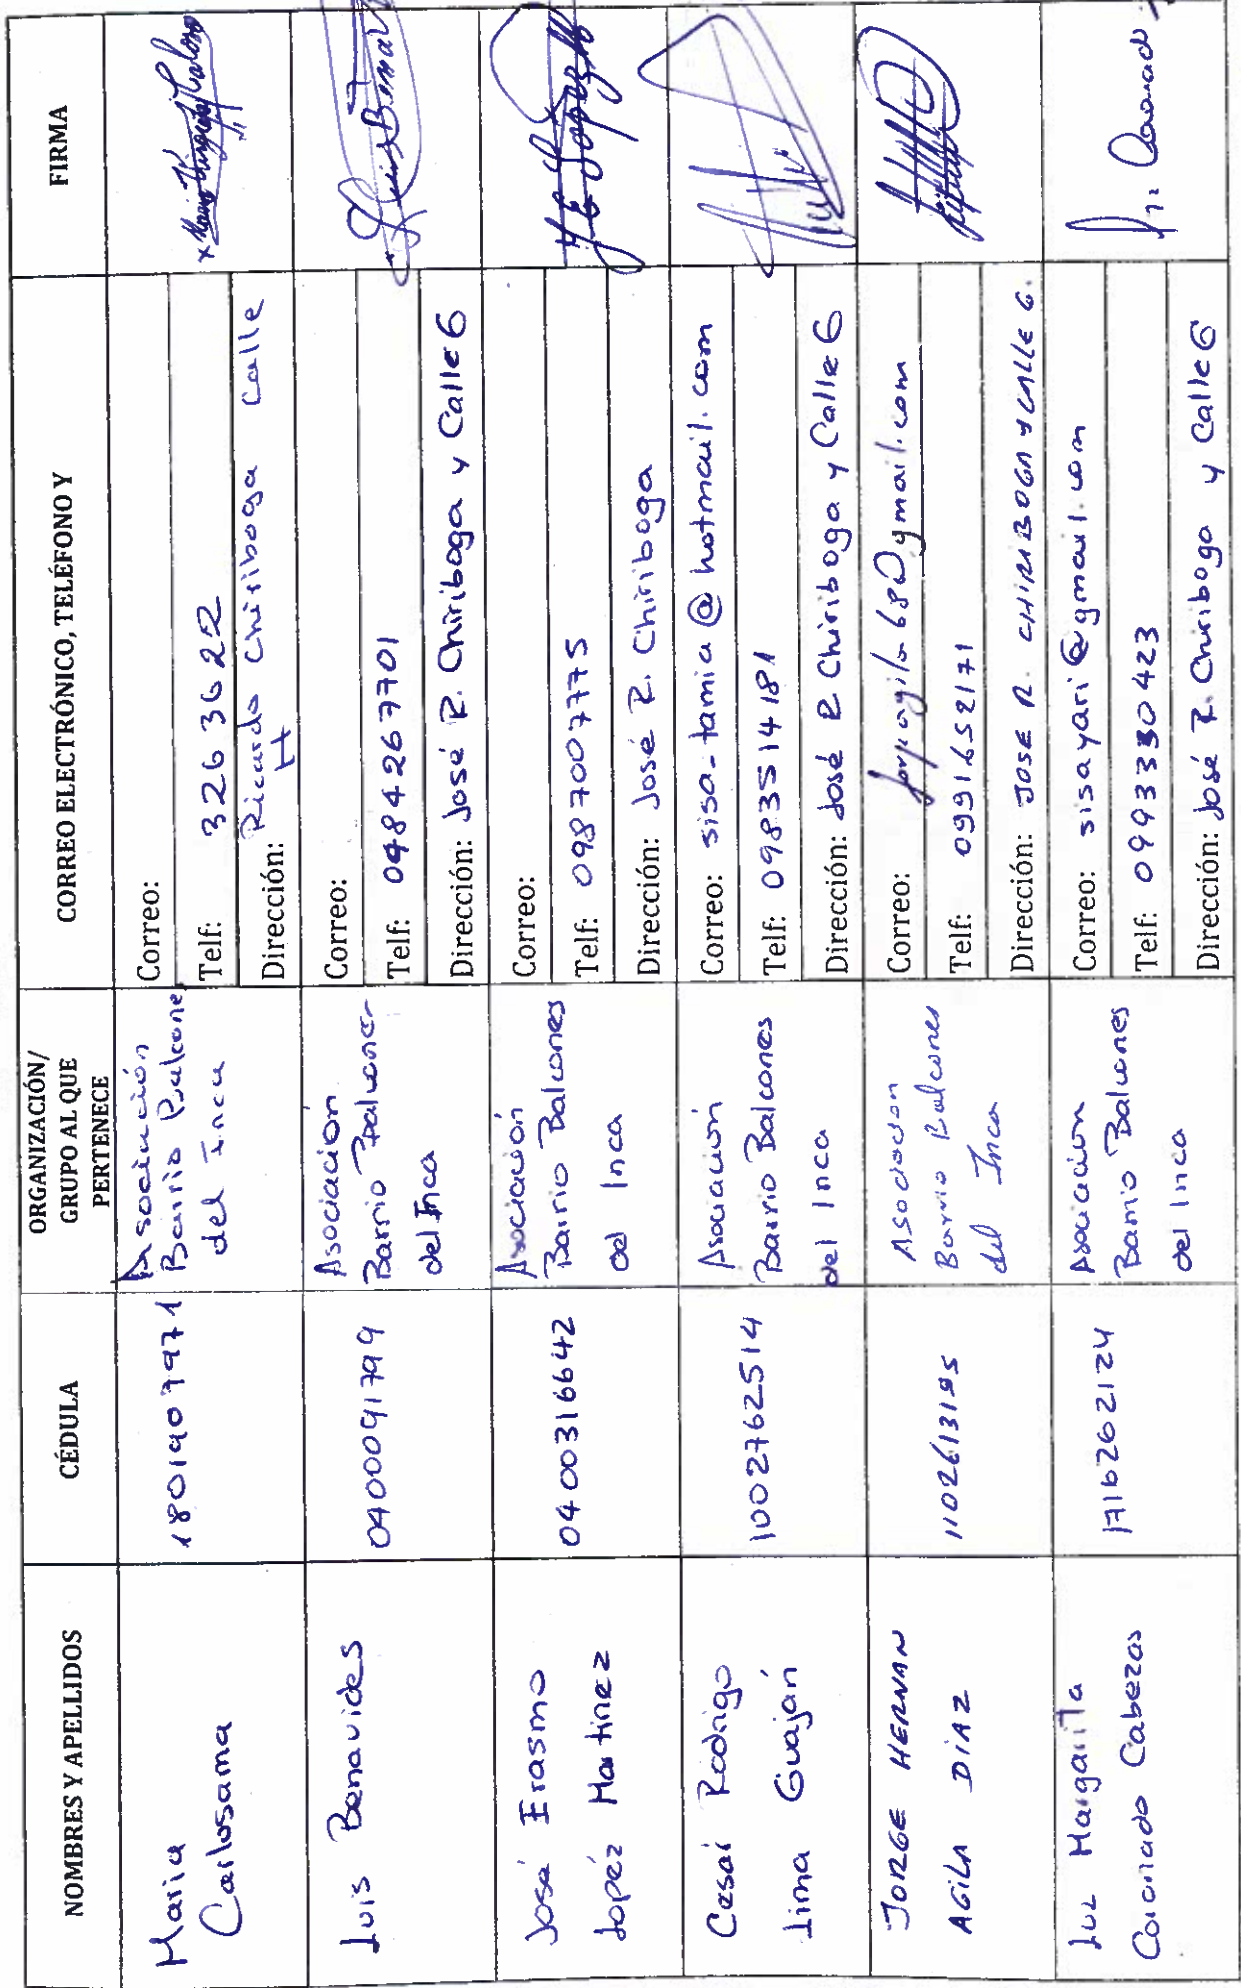 NOMBRES Y APELLIDOS
CÉDULA
ORGANIZACIÓN/
GRUPO AL QUE
PERTENECE
CORREO ELECTRÓNICO, TELÉFONO Y
FIRMA
Maria
Carlosama
1801907971
Asociación
Barrio Balcone
del Inca
Correo:
Telf: 3263622
Ricardo Chiriboga Calle
Dirección: H
Luis Benavides
0400091799
Asociación
Barrio Balcones
del Inca
Correo:
Telf: 0484267701
Dirección: José R. Chiriboga y Calle G
Luis Benav
José Erasmo
Lopéz Martinez
0400316642
Asociación
Barrio Balcones
del Inca
Correo:
Telf: 0987007775
Dirección: José R. Chiriboga
Cesar Rodrigo
Lima Guaján
1002762514
Asociación
Barrio Balcones
del Inca
Correo: sisa-tamia@hotmail.com
Telf: 0983514181
Dirección: José R Chiriboga y Calle G
JORGE HERNAN
AGILA DIAZ
1102613195
Asociacion
Barrio Balcones
del Inca
Correo:
Telf: 0991652171
Dirección: JOSE R. CHIRIBOGA Y CALLE G.
Luz Margarita
Coronado Cabezas
1716262124
Asociación
Barrio Balcones
del Inca
Correo: sisayari@gmail.com
Telf: 0993330423
Dirección: José R. Chiriboga y Calle G